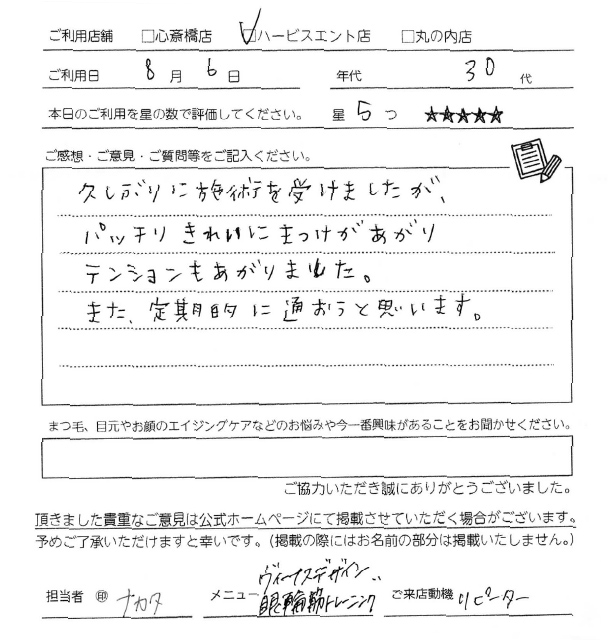 ご利用店舗 □心斎橋店 ☑ハービスエント店 □丸の内店
ご利用日 8月6日 年代 30代
本日のご利用を星の数で評価してください。 星 5つ ★★★★★
ご感想・ご意見・ご質問等をご記入ください。
久しぶりに施術を受けましたが、
パッチリきれいにまつげがあがり
テンションもあがりました。
また、定期的に通おうと思います。
まつ毛、目元やお顔のエイジングケアなどのお悩みや今一番興味があることをお聞かせください。
ご協力いただき誠にありがとうございました。
頂きました貴重なご意見は公式ホームページにて掲載させていただく場合がございます。
予めご了承いただけますと幸いです。(掲載の際にはお名前の部分は掲載いたしません。)
ヴィーナスデザイン
担当者 ㊞ ナカタ メニュー 眼輪筋トレーニング ご来店動機 リピーター